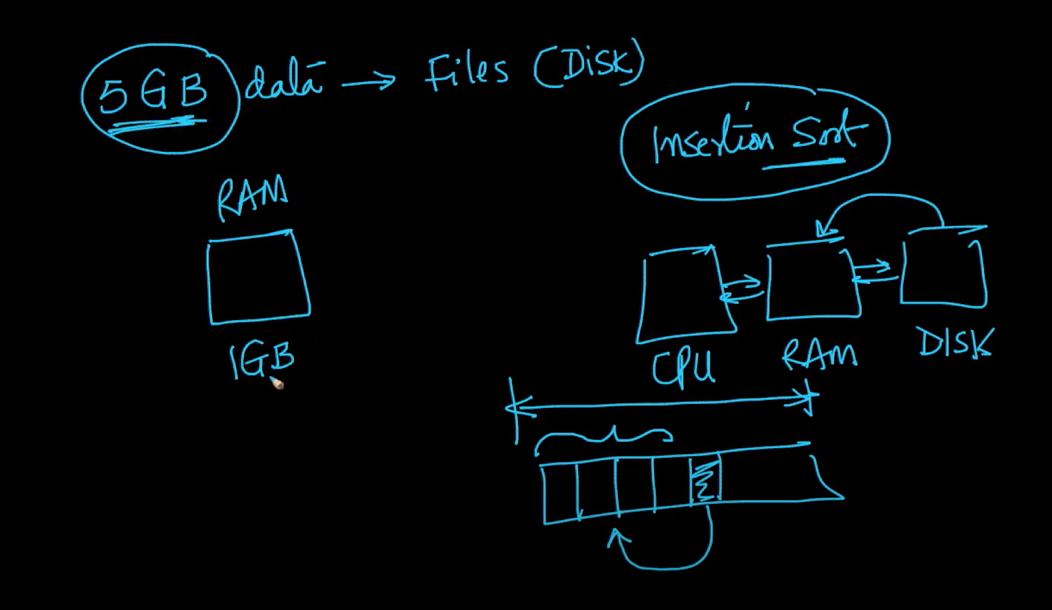 5 GB data → Files (Disk)
Insertion Sort
RAM
1GB
CPU
RAM
DISK